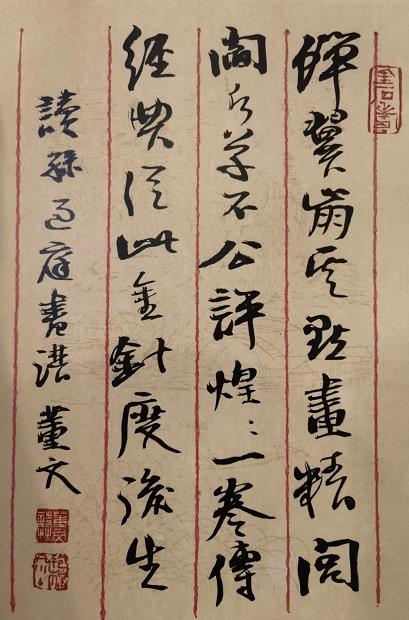 蟬翼崩雲點畫精閭
閻凡草不公評煌〻一卷傳
經典從此金針度後生
讀孫過庭書譜 董文